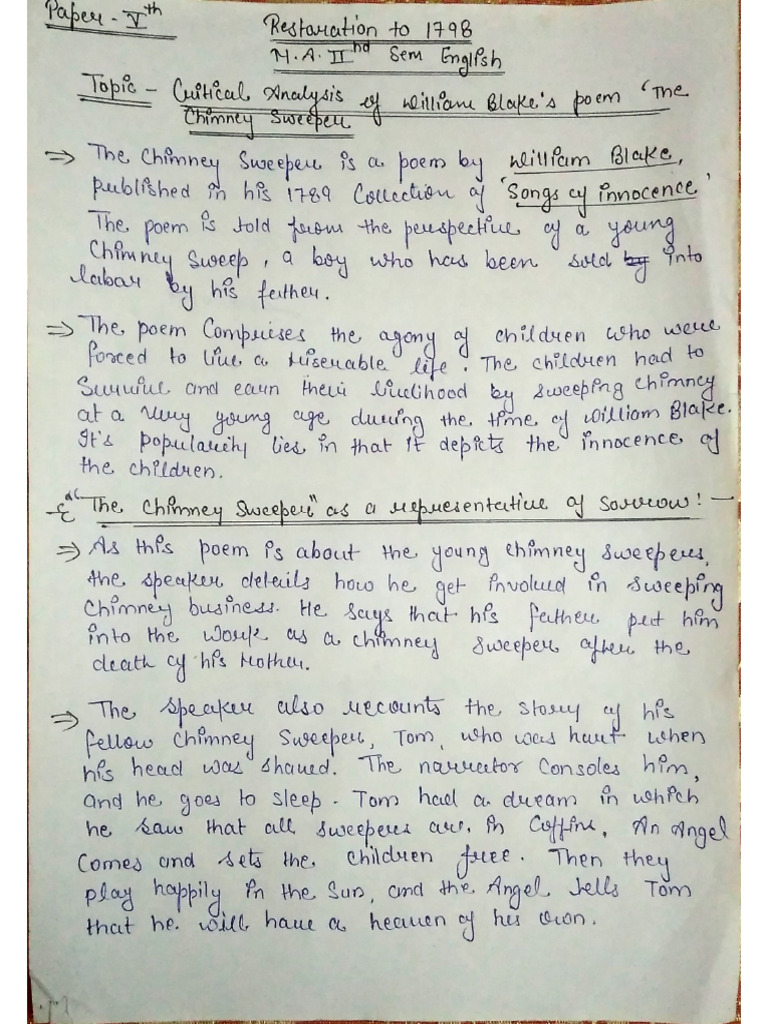 Paper - Vth
Restoration to 1798
M.A. IInd Sem English
Topic - Critical Analysis of William Blake's poem 'The
Chimney Sweeper
⇒ The Chimney Sweeper is a poem by William Blake,
published in his 1789 Collection of 'Songs of innocence'
The poem is told from the perspective of a young
Chimney Sweep, a boy who has been sold by into
labar by his father.
⇒ The poem Comprises the agony of children who were
forced to live a miserable life. The children had to
Survive and earn their livelihood by sweeping chimney
at a very young age during the time of William Blake.
It's popularity lies in that it depicts the innocence of
the children.
"The Chimney Sweeper" as a representative of Sorrow! -
⇒ As this poem is about the young chimney sweepers,
the speaker details how he get involved in sweeping
chimney business. He says that his father put him
into the work as a chimney sweeper after the
death of his Mother.
⇒ The speaker also recounts the story of his
fellow chimney Sweeper, Tom, who was hurt when
his head was shaved. The narrator Consoles him,
and he goes to sleep. Tom had a dream in which
he saw that all sweepers are in Coffins, An Angel
Comes and sets the children free. Then they
play happily in the Sun, and the Angel tells Tom
that he will have a heaven of his own.